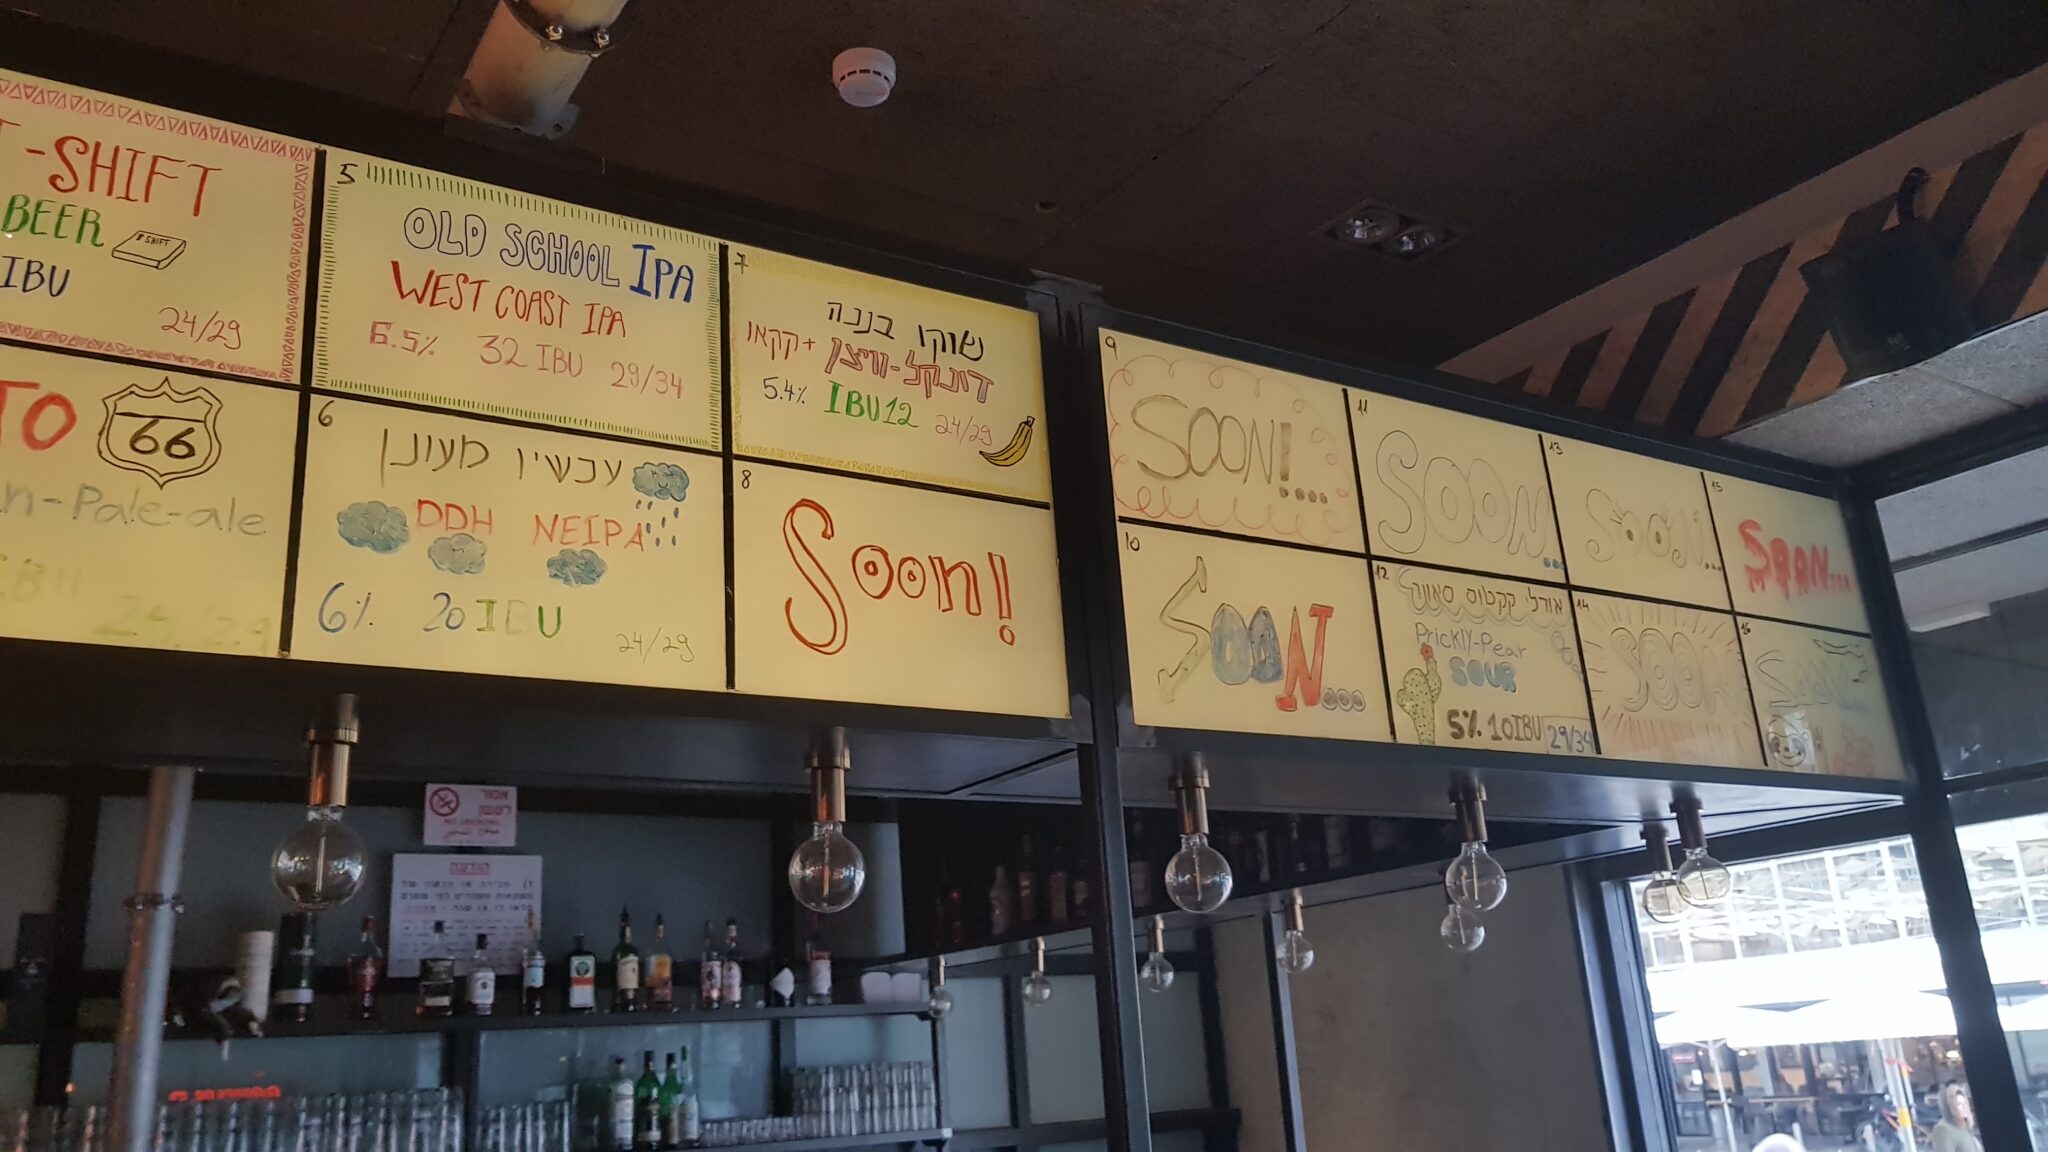 -SHIFT
BEER
SHIFT
IBU
24/29
TO 66
n-Pale-ale
5
OLD SCHOOL IPA
WEST COAST IPA
6.5% 32 IBU 29/34
6
עכשיו מעונן
DDH NEIPA
6% 20 IBU
24/29
7
שוקו בננה
דונקל-וויצן + קקאו
5.4% IBU 12 24/29
8
Soon!
9
SOON!...
10
SOON...
11
SOON...
12
אודלי קקטוס סאוור
Prickly-Pear
SOUR
5% 10 IBU 29/34
13
SOON...
14
SOON
15
SOON...
16